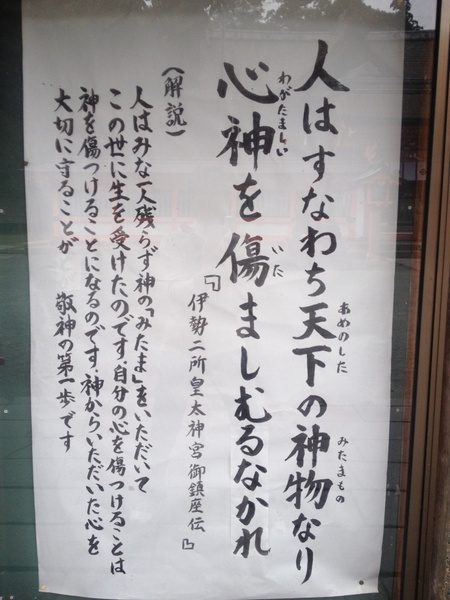 人はすなわち天下の神物なり
あめのした
みたまもの
心神を傷ましむるなかれ
わがたましい
いた
『伊勢二所皇太神宮御鎮座伝』
(解説)
人はみな一人残らず神の「みたま」をいただいて
この世に生を受けたのです。自分の心を傷つけることは
神を傷つけることになるのです。神からいただいた心を
大切に守ることが 敬神の第一歩です